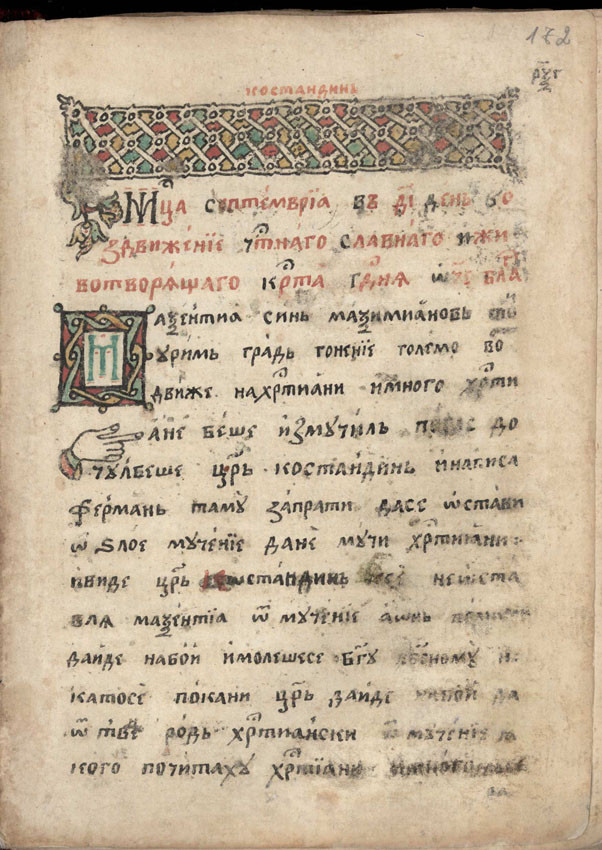 172
рч҃г
костандинь
Мц҃а септемврїа въ д҃ї день во
здвиженїе чтⷭ҇наго славнаго и жи
вотворящаго крⷭ҇та гдⷭ҇ня ѿч҃е бл҃
Маѯентиа синь маѯимиановь
у римь градь гоненїе големо во
движе на хрⷭ҇тиани и много хрⷭ҇ти
ане беше измучиль до
чул беше цр҃ь костандинь и написа
фермань таму запрати да се ѡстави
ѡ ѕлое мученїе да не мучи хрⷭ҇тиꙗни
и виде цр҃ь костандинь не ѡста
вля маѯентїа ѿ мученїе а ѡнь
заиде на бои и молеше се бг҃у нбⷭ҇ному и
като се покани цр҃ь заиде на бои да
ѿ родь хрⷭ҇тиански ѿ мученїе
кого почитаху хрⷭ҇тїани и много